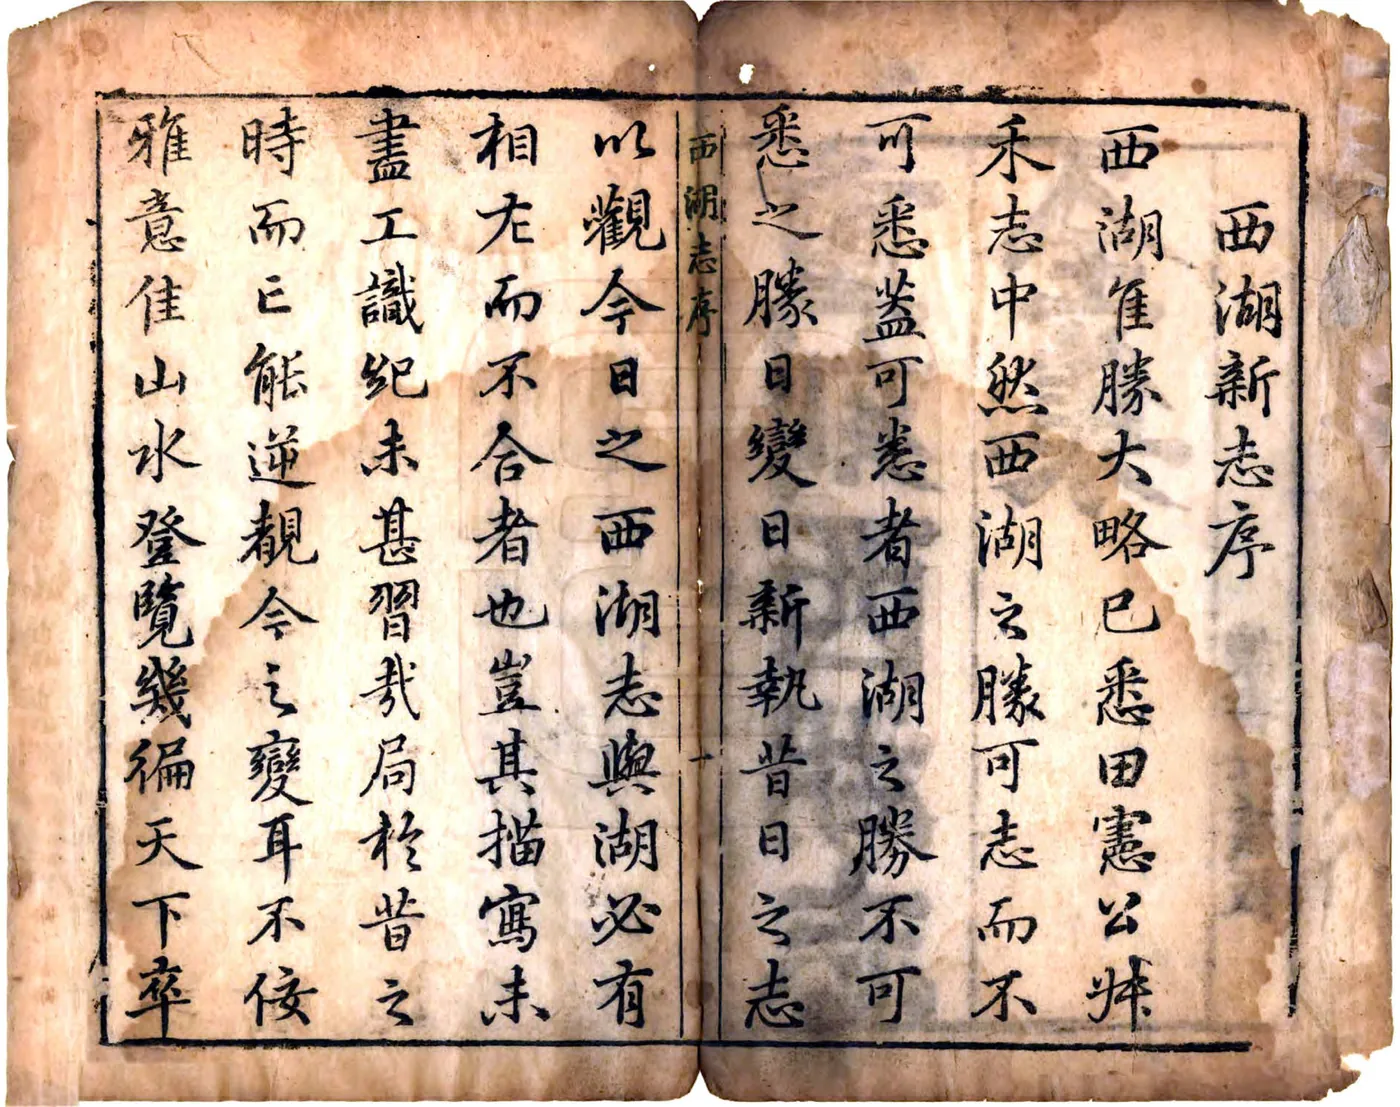 西湖新志序
西湖隹勝大略已悉田憲公叔
禾志中然西湖之勝可志而不
可悉葢可悉者西湖之勝不可
悉之勝日變日新執昔日之志
西湖志序
一
以觀今日之西湖志與湖必有
相左而不合者也豈其描寫未
盡工識紀未甚習哉局於昔之
時而已能逆覩今之變耳不佞
雅意佳山水登覽幾徧天下卒